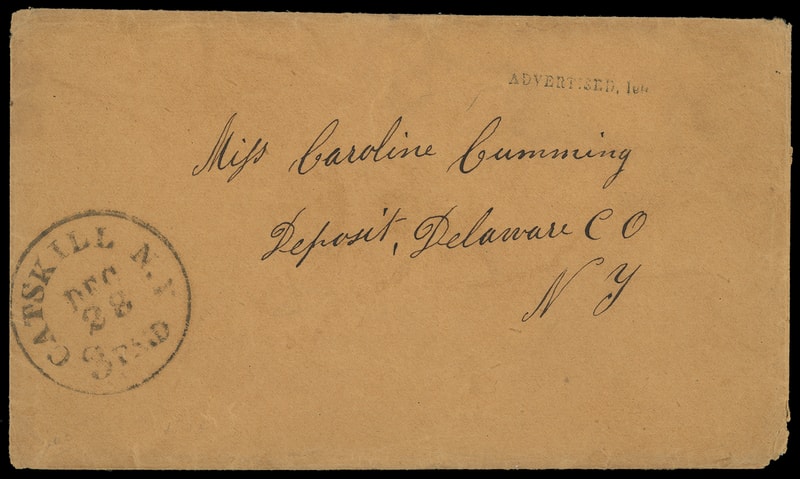 ADVERTISED,
Miss Caroline Cumming
Deposit, Delaware CO
N Y
CATSKILL N.Y
DEC
28
3 PAID